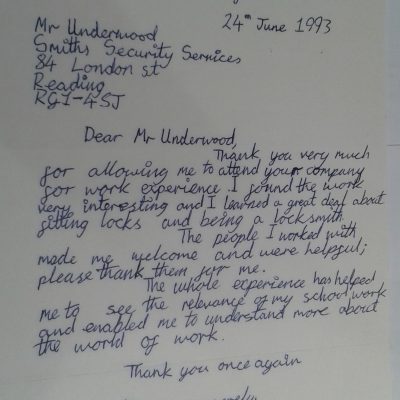 24th June 1993
Mr Underwood
Smiths Security Services
84 London st
Reading
RG1-4SJ
Dear Mr Underwood,
Thank you very much
for allowing me to attend your company
for work experience. I found the work
very interesting and I learned a great deal about
fitting locks and being a locksmith.
The people I worked with
made me welcome and were helpful;
please thank them for me.
The whole experience has helped
me to see the relevance of my school work
and enabled me to understand more about
the world of work.
Thank you once again